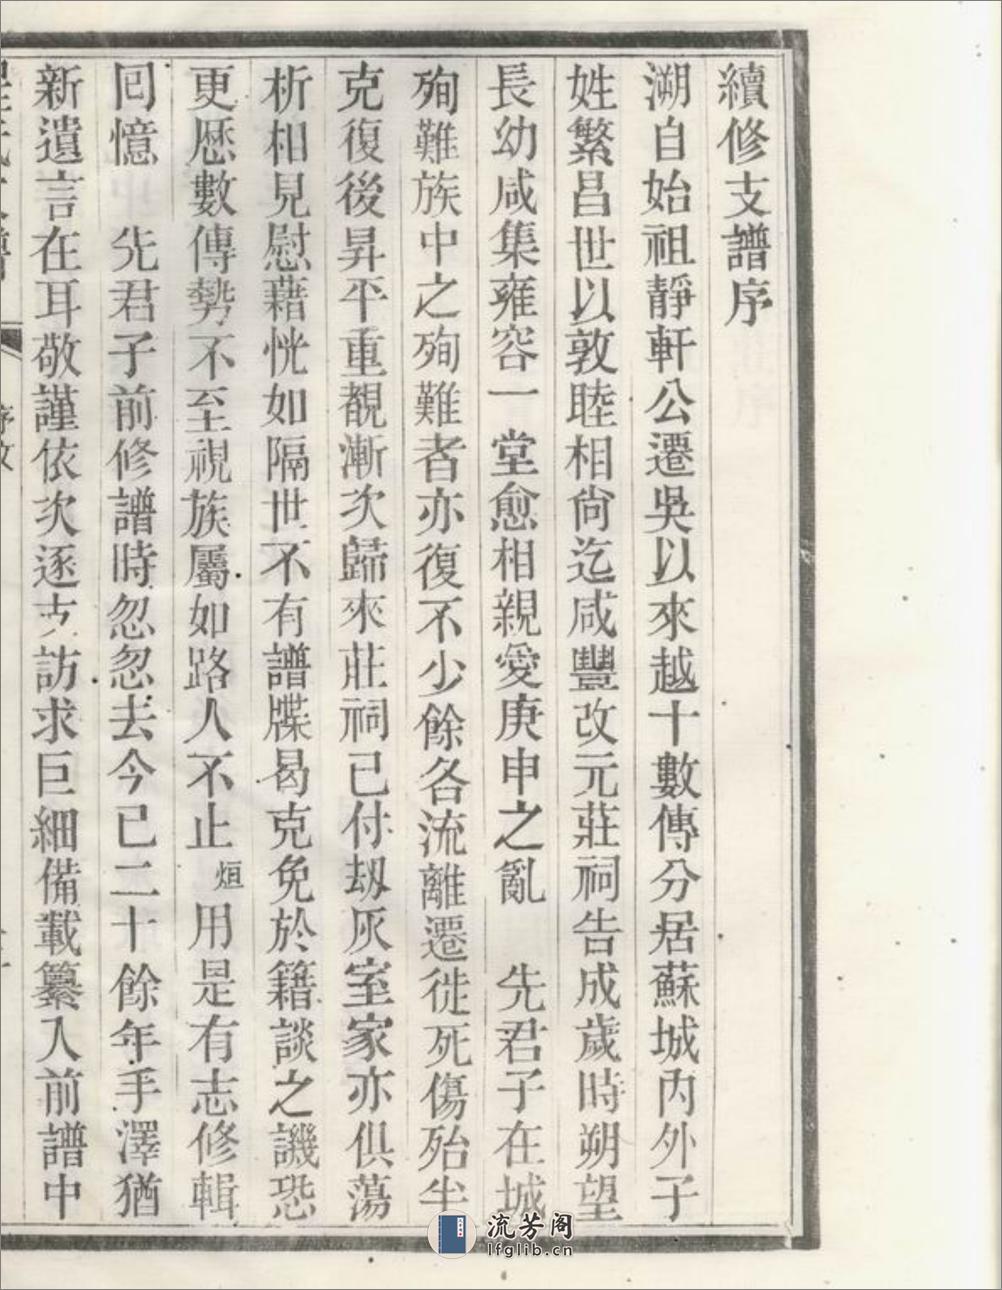 續修支譜序
溯自始祖靜軒公遷吳以來越十數傳分居蘇城內外子
姓繁昌世以敦睦相尙迄咸豐改元莊祠告成歲時朔望
長幼咸集雍容一堂愈相親愛庚申之亂　先君子在城
殉難族中之殉難者亦復不少餘各流離遷徙死傷殆半
克復後昇平重覩漸次歸來莊祠已付刼灰室家亦俱蕩
析相見慰藉恍如隔世不有譜牒曷克免於籍談之譏恐
更歷數傳勢不至視族屬如路人不止烜用是有志修輯
囘憶　先君子前修譜時忽忽去今已二十餘年手澤猶
新遺言在耳敬謹依次逐支訪求巨細備載纂入前譜中
序文
流芳阁
lfglib.cn